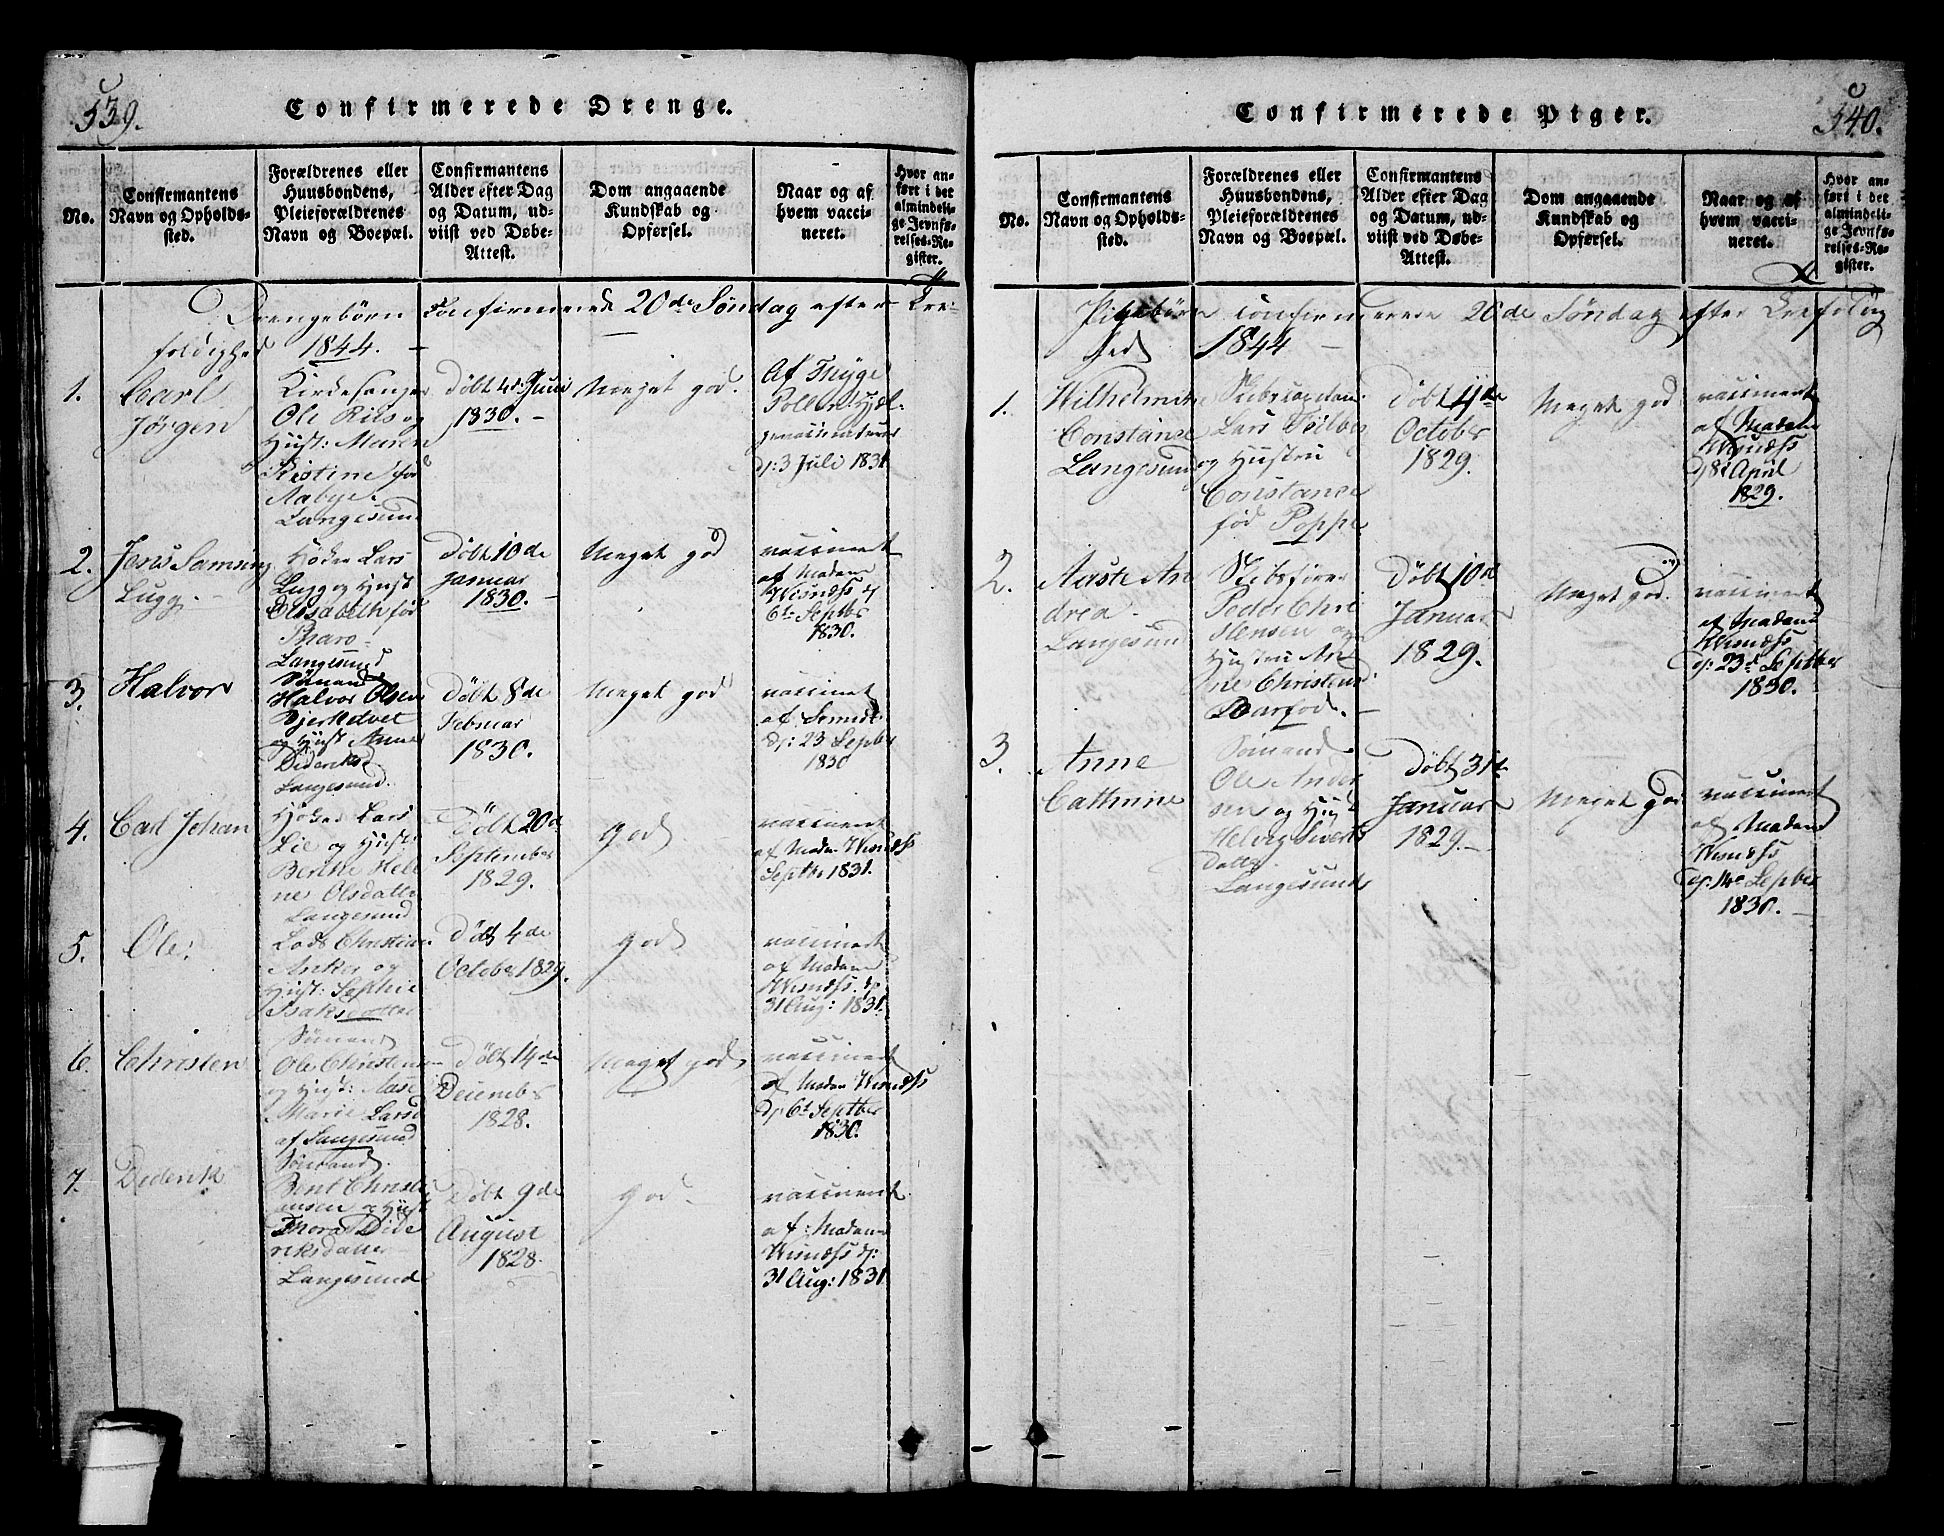 539.
Confirmerede Drenge.
No.
Confirmantens
Navn og Opholds-
sted.
Forældrenes eller
Huusbondens,
Pleieforældrenes
Navn og Boepæl.
Confirmantens
Alder efter Dag
og Datum, ud-
viist ved Døbe-
Attest.
Dom angaaende
Kundskab og
Opførsel.
Naar og af
hvem vacci-
neret.
Hvor an-
ført i det
almindeli-
ge Jevnfø-
relses-Re-
gister.
Drengebørn Confirmerede 20de Søndag efter Tre-
foldighed 1844.
1.
Carl
Jørgen
Kirkesanger
Ole Riis og
Hust: Maren
Kistine fød
Aabye.
Langesund
Døbt 4de Juni
1830.
Meget god.
Af Thyge
d: 3 Juli 1831
2.
Jens Samsing
Lugg.
Høker Lars
Lugg og Hust
Elisabeth fød
Pharo
Langesund
Døbt 10de
Januar
1830.
Meget god
vaccineret
af Madame
6te Septbr
1830.
3.
Halvor
Sömand
Halvor Olsen
Bjerketvet
og Hust Anne
Dideriks
Langesund.
Døbt 8de
Februar
1830.
Meget god
vaccineret
af
d: 23 Septbr
1830
4.
Carl Johan
Høker Lars
Lie og Hust
Berthe Hele
ne Olsdatter
Langesund
Døbt 20de
September
1829.
god
vaccineret
af Madm Wisnæss
Septbr 1831.
5.
Ole:
Lods Christian
Anker og
Hust: Sophie
Isaksdatter
Døbt 4de
October 1829.
god
vaccineret
af Madame
Wisnæss. d
31 Aug: 1831.
6.
Christen
Sömand
Ole Christensen
og Hust: Aase
Marie Larsd
af Langesund
Døbt 14de
December
1828.
Meget god
vaccineret
af Madm Wisnæss
d 6te Septber
1830.
7.
Diderik
Sömand
Bent Christi
ansen og Hust
Thora Dide
riksdatter
Langesund
Døbt 9de
August
1828.
god
vaccineret
af Madame
Wisnæss d:
31 Aug: 1831
540.
Confirmerede Piger.
No.
Confirmantens
Navn og Opholds-
sted.
Forældrenes eller
Huusbondens,
Pleieforældrenes
Navn og Boepæl.
Confirmantens
Alder efter Dag
og Datum, ud-
viist ved Døbe-
Attest.
Dom angaaende
Kundskab og
Opførsel.
Naar og af
hvem vacci-
neret.
Hvor an-
ført i det
almindeli-
ge Jevnfø-
relses-Re-
gister.
Pigebørn confirmerede 20de Søndag efter Trefoldig
hed 1844
1.
Wilhelmine
Constanse
Langesund
Lars
og Hustru
Constance
fød Poppe
Døbt 11de
October
1829.
Meget god
vaccineret
af Madame
Wisnæss
d 8de April
1829.
2.
Aaste An
drea
Langesund
Skibsfører
Peder Chri
stensen og
Hustru An
ne Christence
Barfod.
Døbt 10de
Januar
1829.
Meget god.
vaccineret
af Madame
Wisnæss
d: 23de Septber
1830.
3.
Anne
Cathrine
Sömand
Ole Ander
sen og Hust
Helvig Siverts
Datter
Langesund
Døbt 31te
Januar
1829.
Meget god
vaccineret
af Madame
Wisnæss
d: 14de Septber
1830.